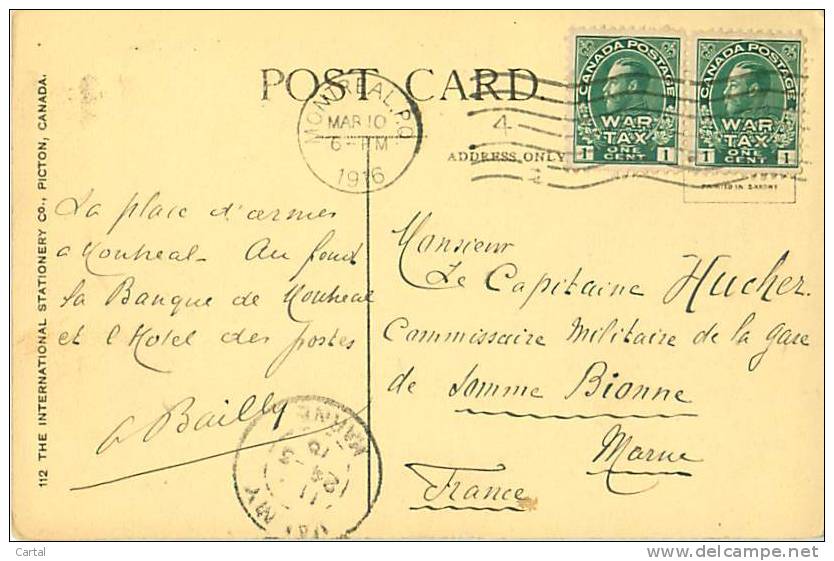 POST CARD.
CANADA POSTAGE
WAR
TAX
ONE
CENT
1 1
CANADA POSTAGE
WAR
TAX
ONE
CENT
1 1
MONTREAL, P.Q.
MAR 10
6 - PM
1916
4
ADDRESS ONLY
PRINTED IN SAXONY
112 THE INTERNATIONAL STATIONERY CO., PICTON, CANADA.
La place d'armes
a Montreal - Au fond
la Banque de Montreal
et l'Hotel des postes
A Bailly
Monsieur
Le Capitaine Hucher.
Commissaire Militaire de la gare
de Somme Bionne
Marne
France
MARNE
Cartal
www.delcampe.net